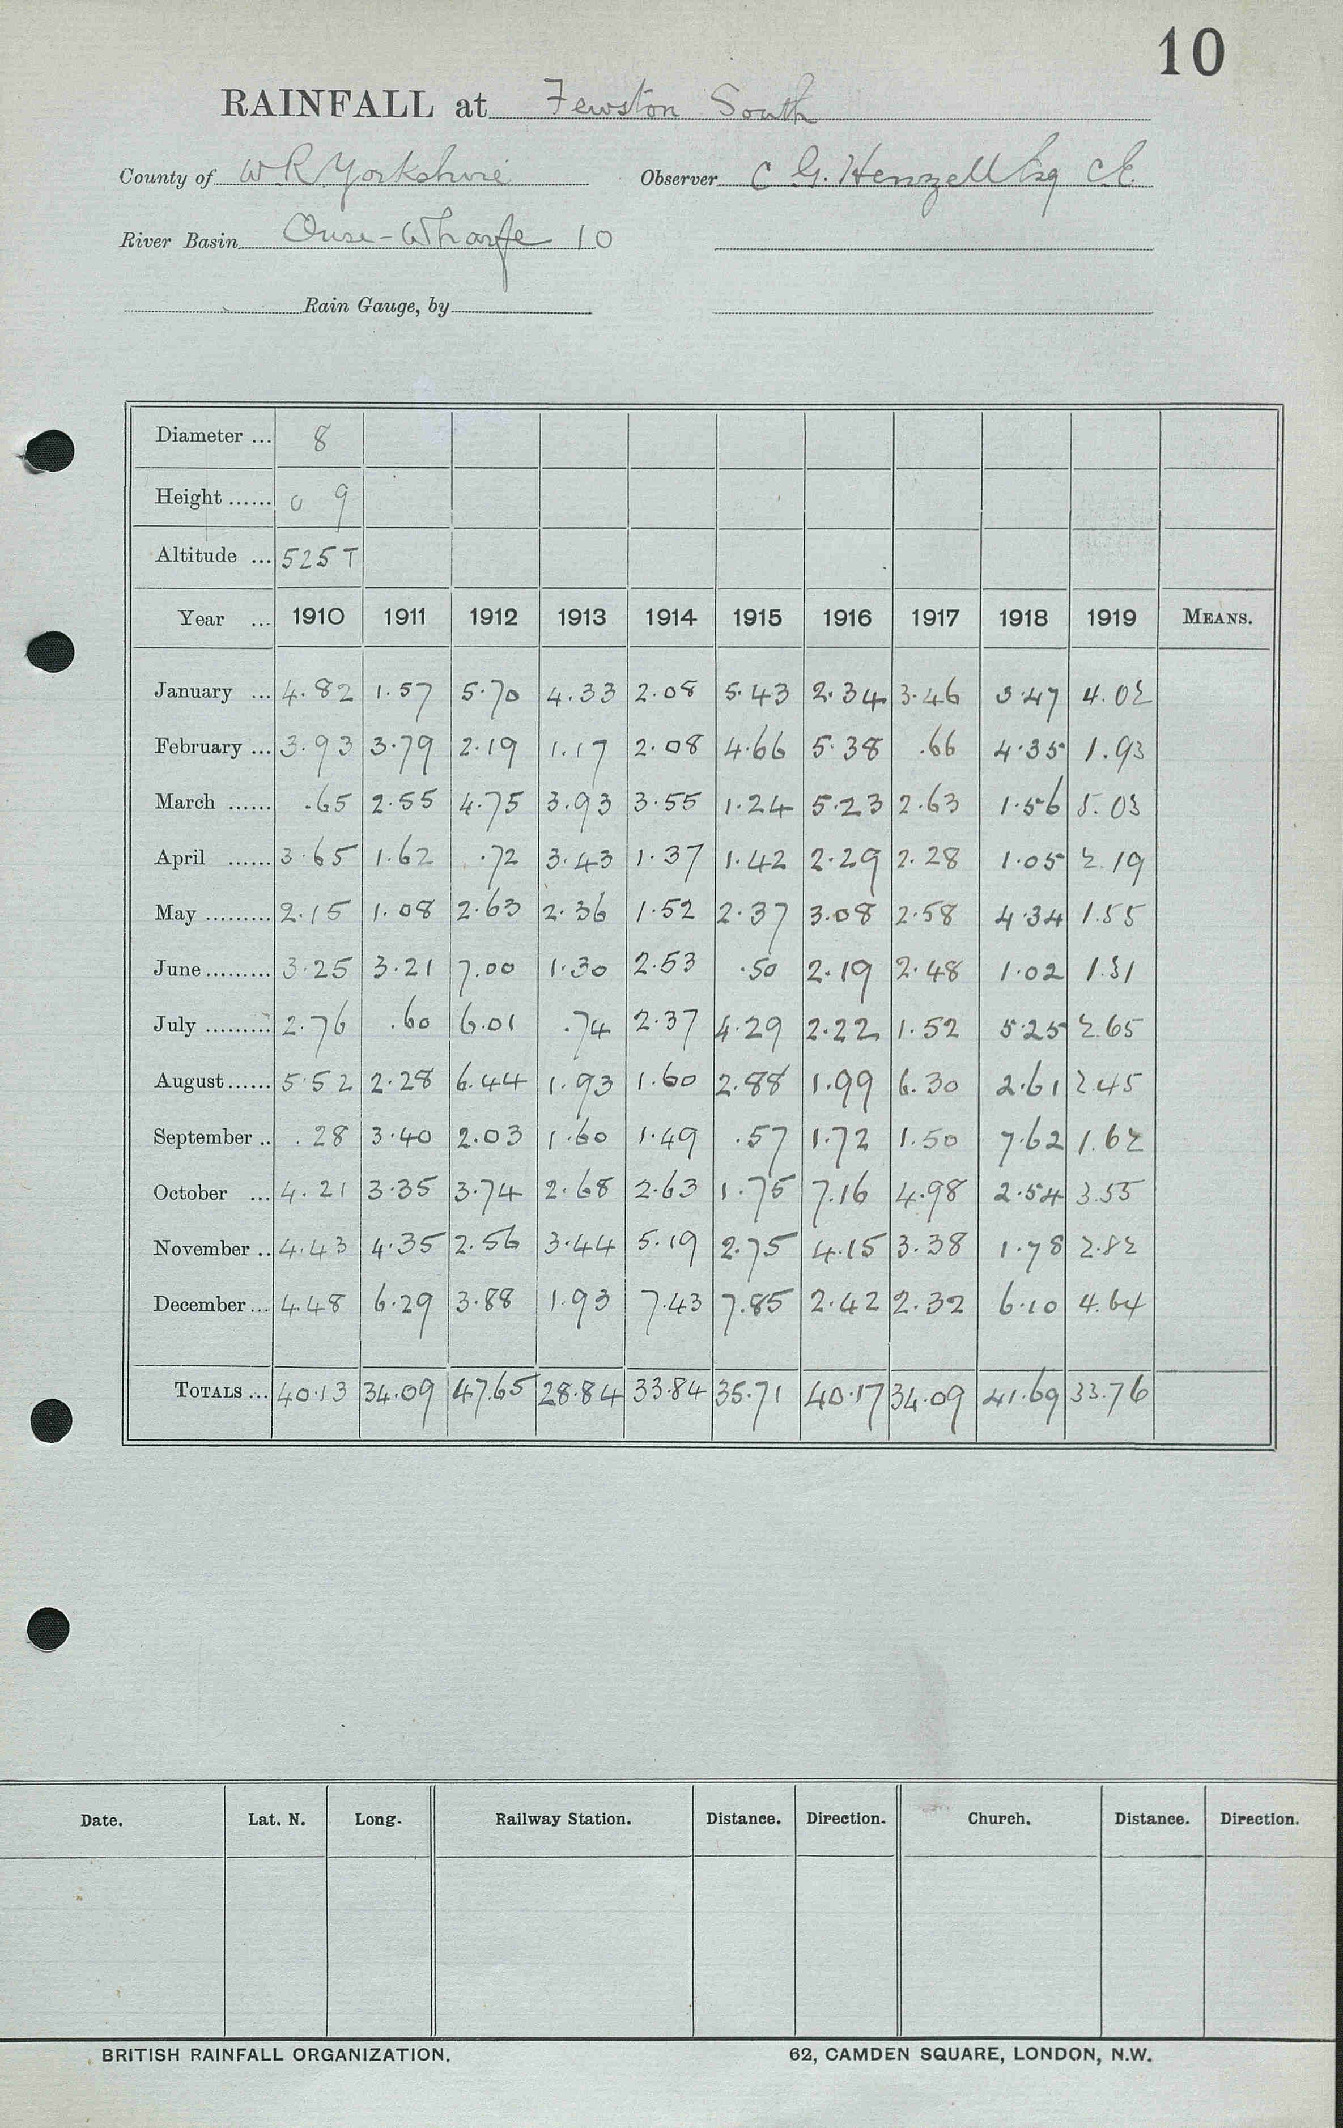 10
RAINFALL at Fewston South
County of W R Yorkshire Observer C G. Henzell Esq CE.
River Basin Ouse-Wharfe 10
Rain Gauge, by
Diameter ... 8
Height ...... 0 9
Altitude ... 525 T
Year ... 1910 1911 1912 1913 1914 1915 1916 1917 1918 1919 MEANS.
January ... 4.82 1.57 5.70 4.33 2.08 5.43 2.34 3.46 3.47 4.02
February ... 3.93 3.79 2.19 1.17 2.08 4.66 5.38 .66 4.35 1.93
March ...... .65 2.55 4.75 3.93 3.55 1.24 5.23 2.63 1.56 5.03
April ...... 3.65 1.62 .72 3.43 1.37 1.42 2.29 2.28 1.05 2.19
May ......... 2.15 1.08 2.63 2.36 1.52 2.37 3.08 2.58 4.34 1.55
June ......... 3.25 3.21 7.00 1.30 2.53 .50 2.19 2.48 1.02 1.31
July ......... 2.76 .60 6.01 .74 2.37 4.29 2.22 1.52 5.25 2.65
August ...... 5.52 2.28 6.44 1.93 1.60 2.88 1.99 6.30 2.61 2.45
September .. .28 3.40 2.03 1.60 1.49 .57 1.72 1.50 7.62 1.62
October ... 4.21 3.35 3.74 2.68 2.63 1.75 7.16 4.98 2.54 3.55
November .. 4.43 4.35 2.56 3.44 5.19 2.75 4.15 3.38 1.78 2.82
December ... 4.48 6.29 3.88 1.93 7.43 7.85 2.42 2.32 6.10 4.64
TOTALS ... 40.13 34.09 47.65 28.84 33.84 35.71 40.17 34.09 41.69 33.76
Date. Lat. N. Long. Railway Station. Distance. Direction. Church. Distance. Direction.
BRITISH RAINFALL ORGANIZATION. 62, CAMDEN SQUARE, LONDON, N.W.